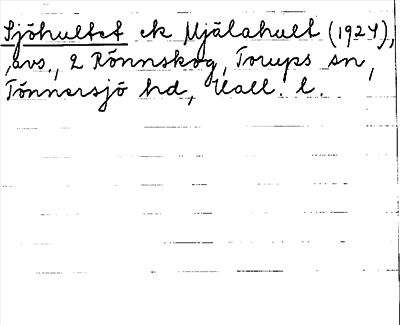 Sjöhultet ek Mjälahult (1924),
avs., 2 Rönnskog, Torups sn,
Tönnersjö hd, Hall. l.